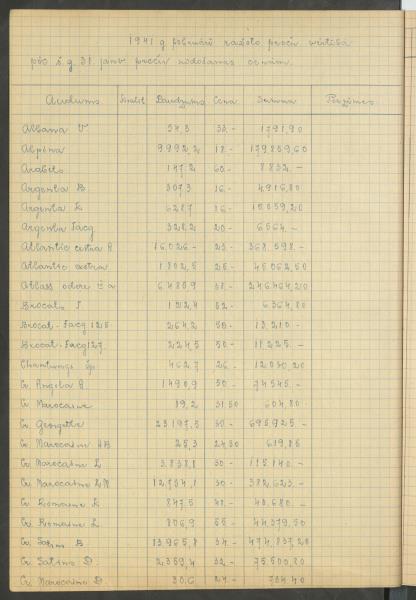 1941 g februārī ražoto preču vērtība
pēc š. g 31. janv precēm nodošanas cenām.
Audums Daudzums Cena Summa Piezīmes
Albana V 54,3 33.- 1791,90
Alpina 9992,2 18.- 179859,60
147,2 60.- 8832.-
Argenta B 307,3 16.- 4916,80
Argenta L 628,7 16.- 10059,20
Argenta Jacq 328,2 20.- 6564.-
Atlantic extra R 16.026.- 23.- 368.598.-
Atlantic extra 1802,5 25.- 45062,50
Atlass 6485,9 38.- 246464,20
Brocat 122,4 52.- 6364,80
Brocat. Jacq 125 264,2 50.- 13,210.-
Brocat. Jacq 127. 224,5 50.- 11225.-
Chantungs Sp 462,7 26.- 12030,20
Cr. Angela R. 1490,9 50.- 74545.-
Cr Marocaine 19,2 31.50 604,80
Cr. Georgette 23197,5 30.- 695925.-
Cr Marocaine AB 25,3 24.50 619,85
Cr Marocaine L 3838,0 30.- 115140.-
Cr. Marocaine LM 12,754,1 30.- 382,623.-
Cr Romaine L. 847,5 48.- 40,680.-
Cr Romaine L. 806,9 55.- 44,379,50
Cr. Satins B 13965,8 34.- 474,837,20
Cr Satins D. 2,359,4 32.- 75,500,80
Cr. Marocaine D 30,6 24.- 734,40